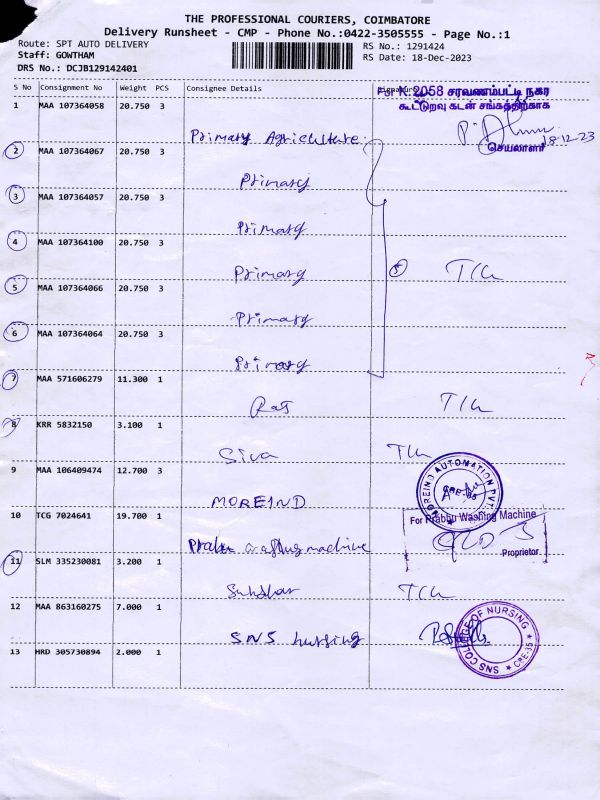 THE PROFESSIONAL COURIERS, COIMBATORE
Delivery Runsheet - CMP - Phone No.:0422-3505555 - Page No.:1
Route: SPT AUTO DELIVERY
Staff: GOWTHAM
DRS No: DCJB129142401
RS No.: 1291424
RS Date: 18-Dec-2023
S No Consignment No Weight PCS Consignee Details Signature
For K.2058 சரவணம்பட்டி நகர
கூட்டுறவு கடன் சங்கத்திற்காக
1 MAA 107364058 20.750 3
Primary Agriculture
18-12-23
செயலாளர்
2 MAA 107364067 20.750 3
Primary
3 MAA 107364057 20.750 3
Primary
4 MAA 107364100 20.750 3
Primary
5 T/L
5 MAA 107364066 20.750 3
Primary
6 MAA 107364064 20.750 3
Primary
7 MAA 571606279 11.300 1
Raj T/L
8 KRR 5832150 3.100 1
Siva T/L
9 MAA 106409474 12.700 3
MOREIND
MOREIND AUTOMATION PVT. CBE-35
10 TCG 7024641 19.700 1
For Prabhu Washing Machine
Proprietor
11 SLM 335230081 3.200 1
T/L
12 MAA 863160275 7.000 1
SNS nursing
SNS COLLEGE OF NURSING CBE-35
13 HRD 305730894 2.000 1